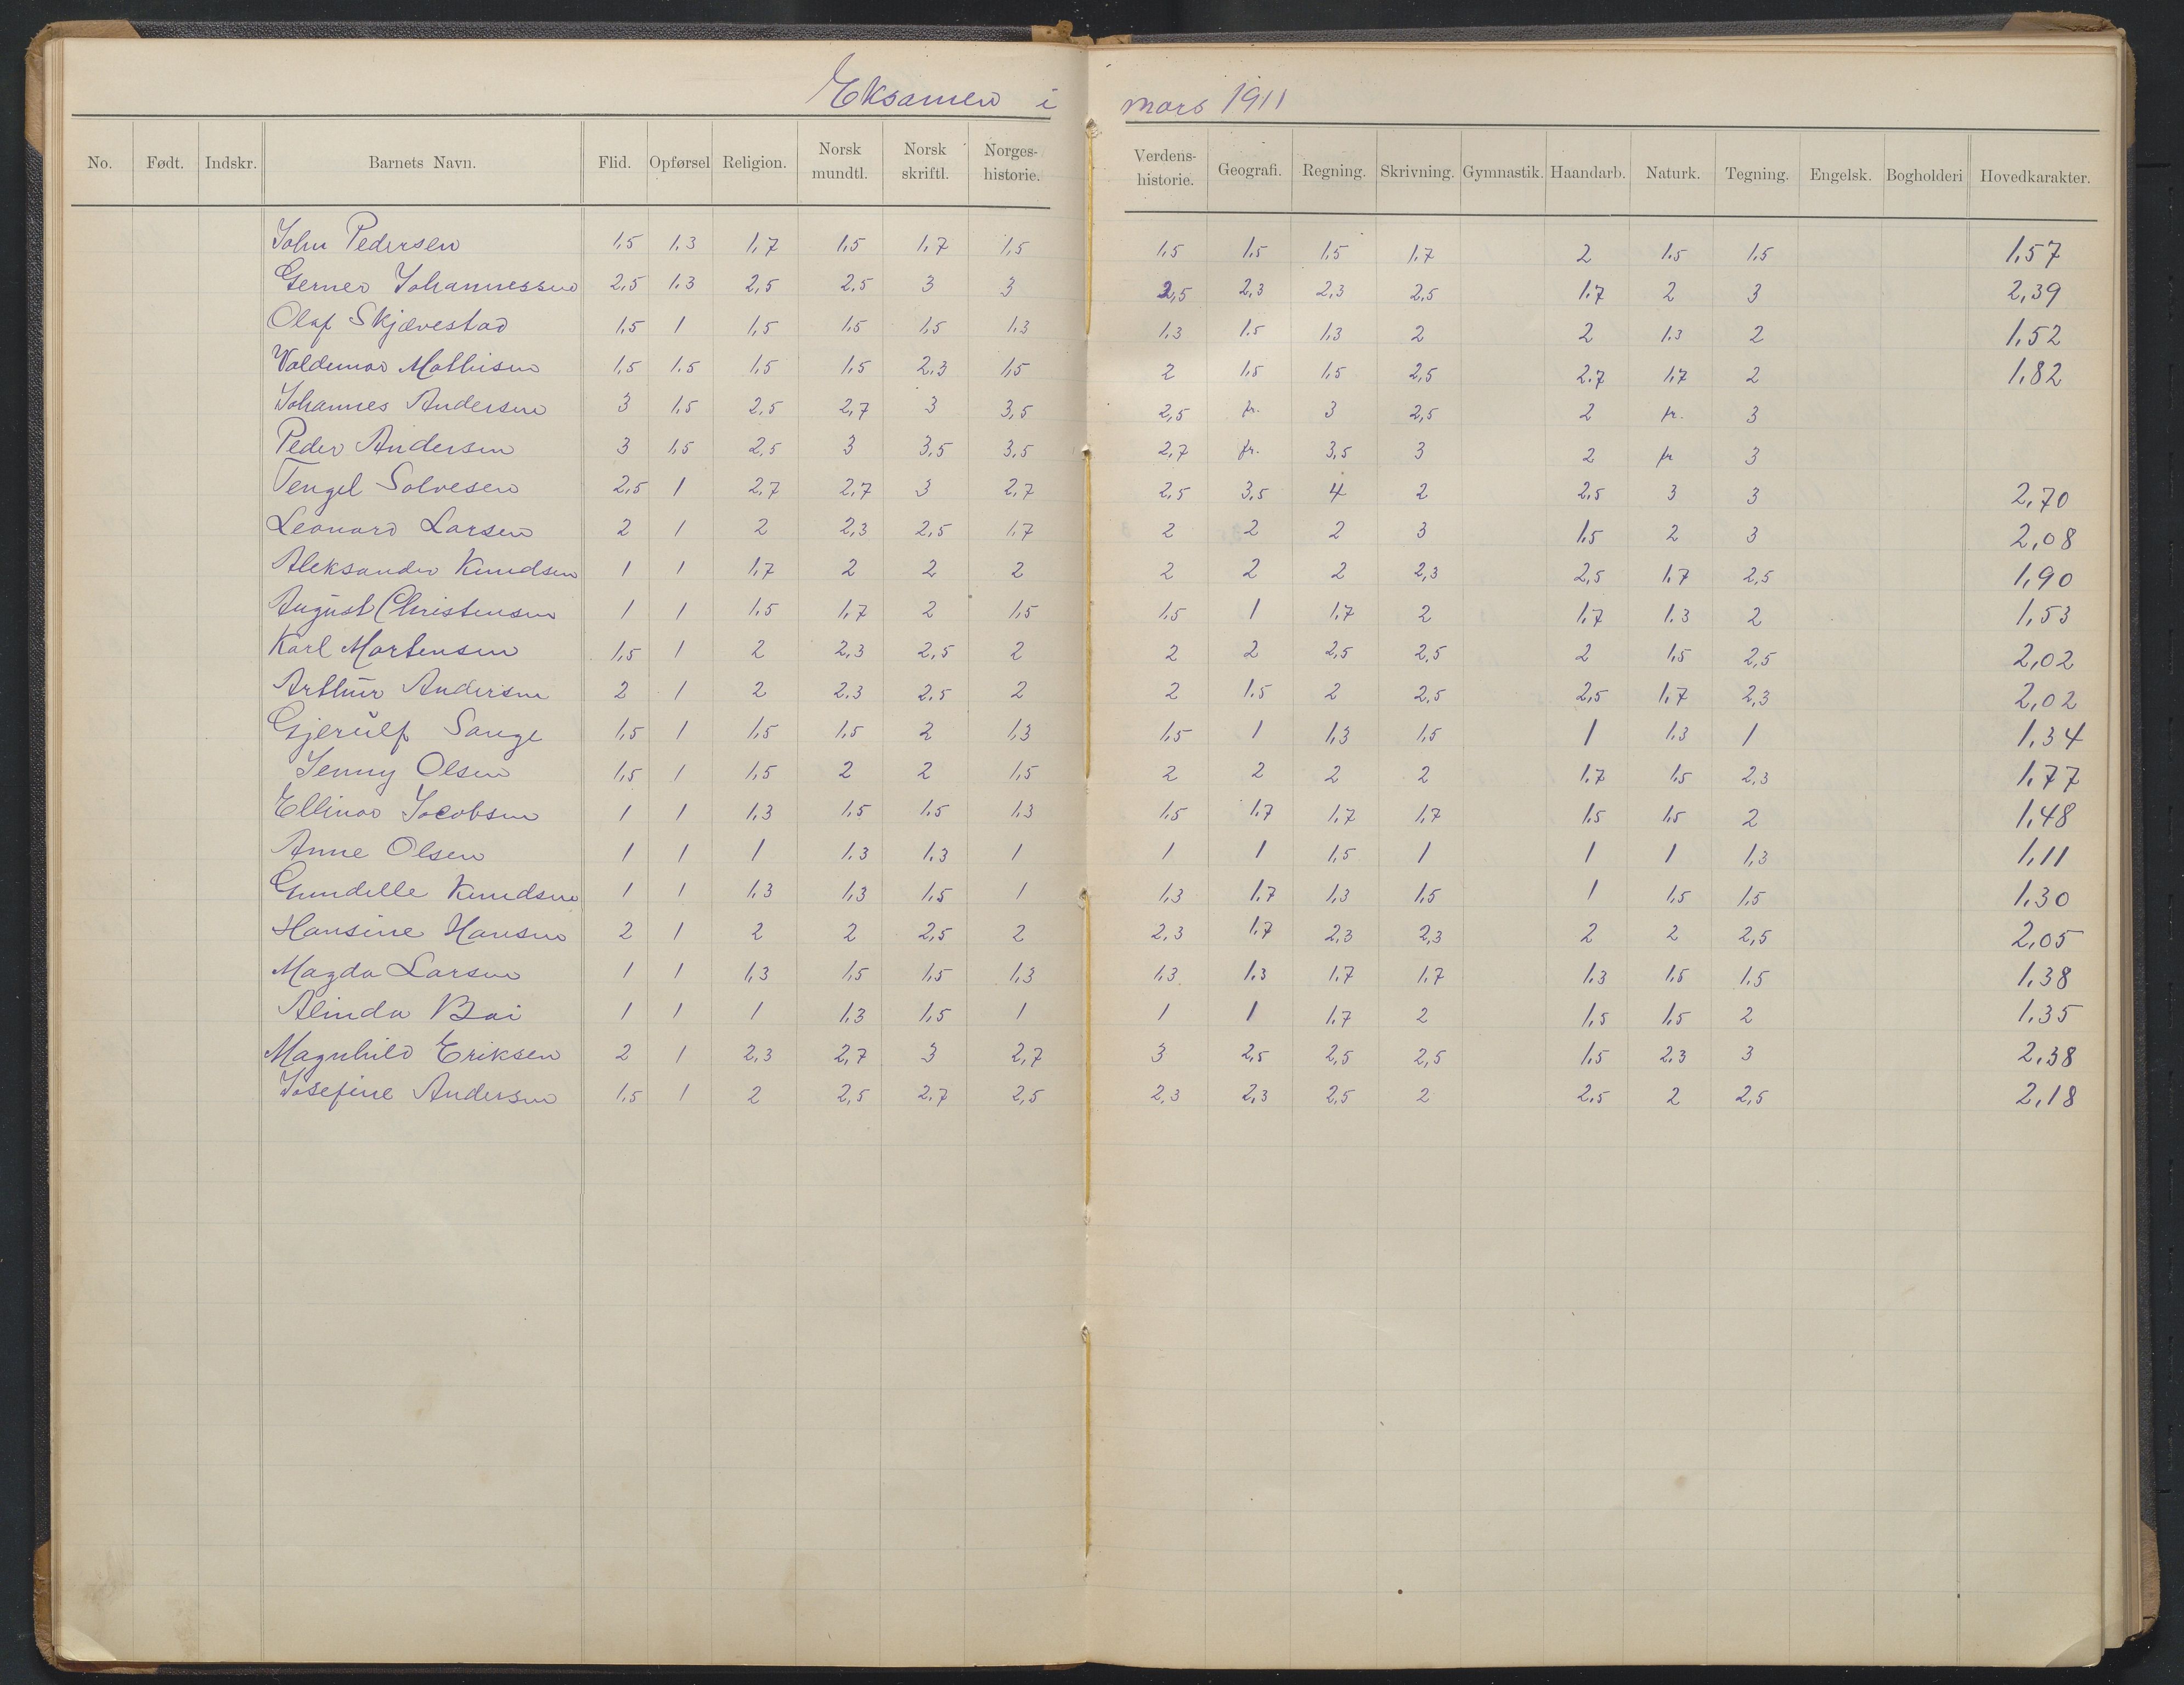 Eksamen i mars 1911
No. Født. Indskr. Barnets Navn. Flid. Opførsel Religion. Norsk mundtl. Norsk skriftl. Norges-historie. Verdens-historie. Geografi. Regning. Skrivning. Gymnastik. Haandarb. Naturk. Tegning. Engelsk. Bogholderi Hovedkarakter.
John Pedersen 1,5 1,3 1,7 1,5 1,7 1,5 1,5 1,5 1,5 1,7 2 1,5 1,5 1,57
Gerner Johannessen 2,5 1,3 2,5 2,5 3 3 2,5 2,3 2,3 2,5 1,7 2 3 2,39
Olaf Skjævestad 1,5 1 1,5 1,5 1,5 1,3 1,3 1,5 1,3 2 2 1,3 2 1,52
Valdemar Mathisen 1,5 1,5 1,5 1,5 2,3 1,5 2 1,5 1,5 2,5 2,7 1,7 2 1,82
Johannes Andersen 3 1,5 2,5 2,7 3 3,5 2,5 fr. 3 2,5 2 fr. 3
Peder Andersen 3 1,5 2,5 3 3,5 3,5 2,7 fr. 3,5 3 2 fr 3
Tengel Solvesen 2,5 1 2,7 2,7 3 2,7 2,5 3,5 4 2 2,5 3 3 2,70
Leonard Larsen 2 1 2 2,3 2,5 1,7 2 2 2 3 1,5 2 3 2,08
Aleksander Knudsen 1 1 1,7 2 2 2 2 2 2 2,3 2,5 1,7 2,5 1,90
August Christensen 1 1 1,5 1,7 2 1,5 1,5 1 1,7 2 1,7 1,3 2 1,53
Karl Mortensen 1,5 1 2 2,3 2,5 2 2 2 2,5 2,5 2 1,5 2,5 2,02
Arthur Andersen 2 1 2 2,3 2,5 2 2 1,5 2 2,5 2,5 1,7 2,3 2,02
Gjerulf Sange 1,5 1 1,5 1,5 2 1,3 1,5 1 1,3 1,5 1 1,3 1 1,34
Jenny Olsen 1,5 1 1,5 2 2 1,5 2 2 2 2 1,7 1,5 2,3 1,77
Ellinor Jacobsen 1 1 1,3 1,5 1,5 1,3 1,5 1,7 1,7 1,7 1,5 1,5 2 1,48
Anne Olsen 1 1 1 1,3 1,3 1 1 1 1,5 1 1 1 1,3 1,11
Gundelle Knudsen 1 1 1,3 1,3 1,5 1 1,3 1,7 1,3 1,5 1 1,5 1,5 1,30
Hansine Hansen 2 1 2 2 2,5 2 2,3 1,7 2,3 2,3 2 2 2,5 2,05
Magda Larsen 1 1 1,3 1,5 1,5 1,3 1,3 1,3 1,7 1,7 1,3 1,5 1,5 1,38
Alinda Boi 1 1 1 1,3 1,5 1 1 1 1,7 2 1,5 1,5 2 1,35
Magnhild Eriksen 2 1 2,3 2,7 3 2,7 3 2,5 2,5 2,5 1,5 2,3 3 2,38
Josefine Andersen 1,5 1 2 2,5 2,7 2,5 2,3 2,3 2,5 2 2,5 2 2,5 2,18